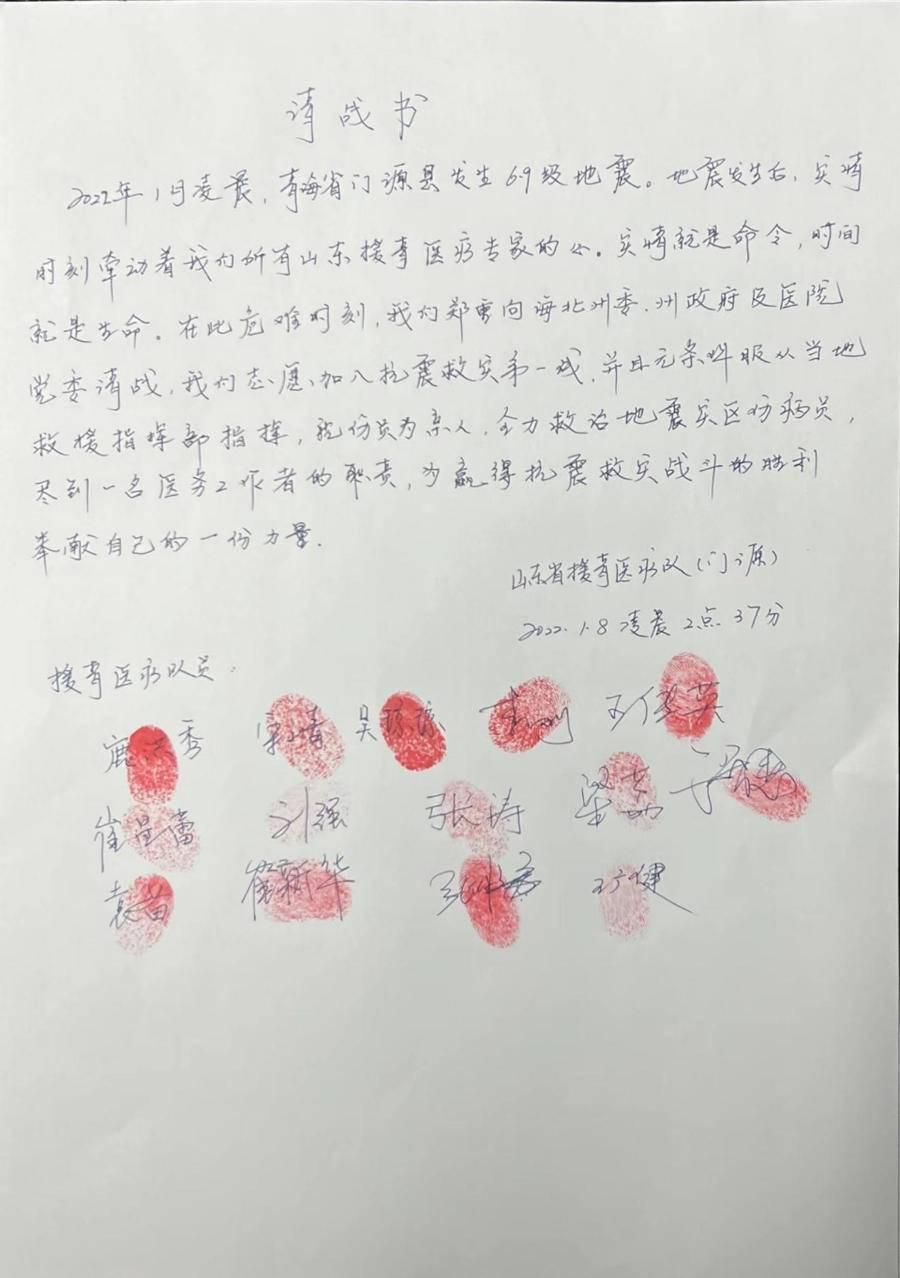 请战书
2022年1月凌晨，青海省门源县发生6.9级地震。地震发生后，灾情
时刻牵动着我们所有山东援青医疗专家的心。灾情就是命令，时间
就是生命。在此危难时刻，我们郑重向海北州委、州政府及医院
党委请战，我们志愿加入抗震救灾第一线，并且无条件服从当地
救援指挥部指挥，视伤员为亲人，全力救治地震灾区伤病员，
尽到一名医务工作者的职责，为赢得抗震救灾战斗的胜利
奉献自己的一份力量.
山东省援青医疗队（门源）
2022.1.8凌晨2点37分
援青医疗队员：
吴琼琼 王俊英
崔星蕾 刘强 张涛 梁英
袁苗 崔新华 王健